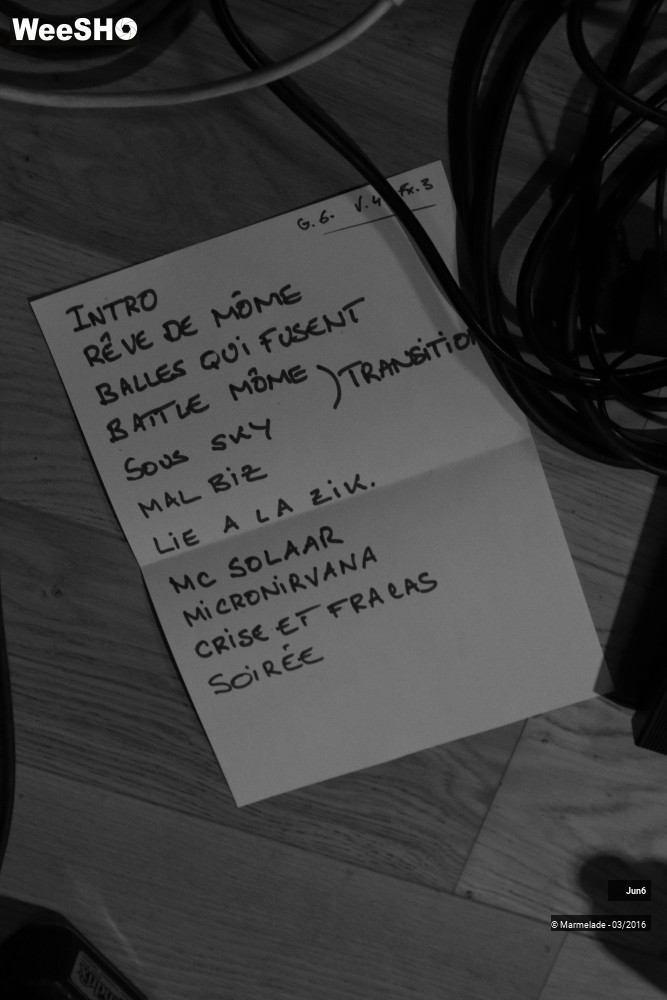 WeeSHO
G.6. V.4 Fx.3
INTRO
RÊVE DE MÔME
BALLES QUi FUSENT
BATTLE MÔME ) TRANSiTiON
SOUS SKY
MAL BiZ
LiE A LA ZiK.
MC SOLAAR
MiCRONiRVANA
CRiSE ET FRACAS
SOiRÉE
Jun6
© Marmelade - 03/2016